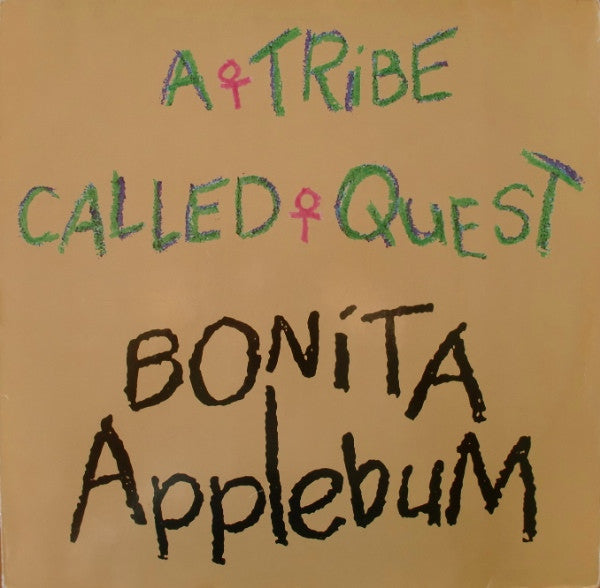 A☥TRiBE
CALLED☥QUEST
BONiTA
ApplebuM